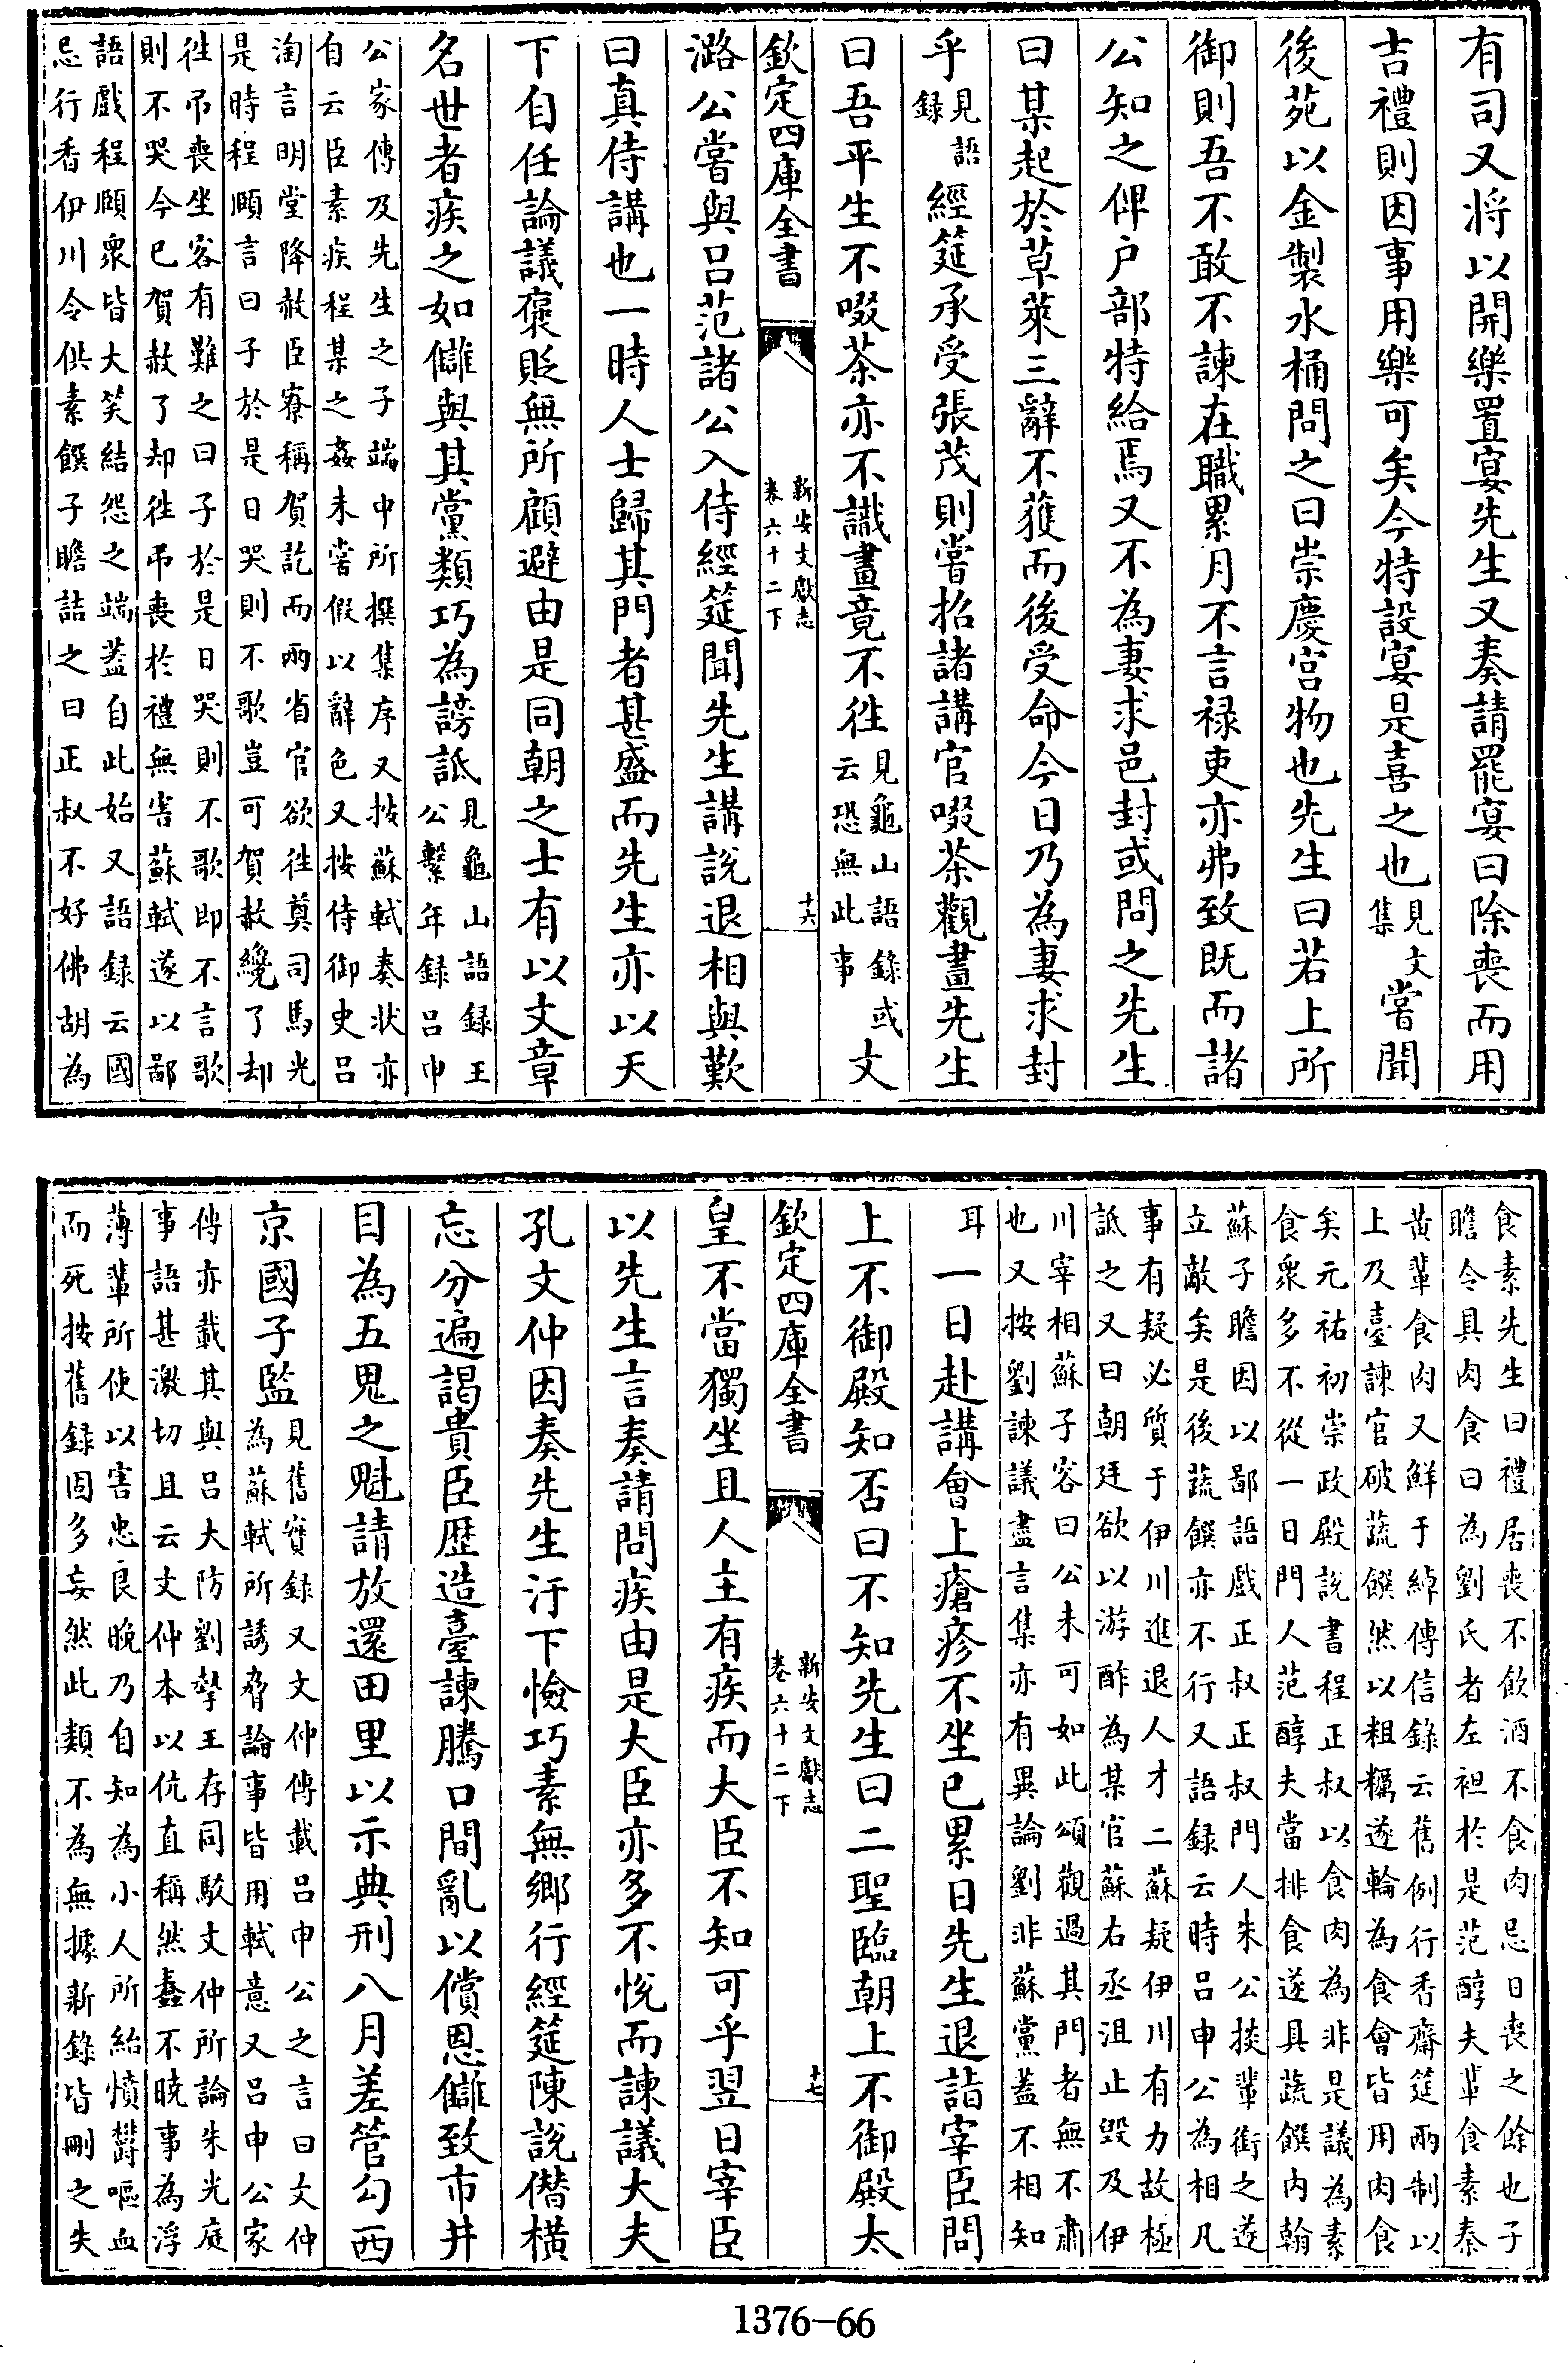 有司又將以開樂置宴先生又奏請罷宴曰除喪而用
吉禮則因事用樂可矣今特設宴是喜之也見文集嘗聞
後苑以金製水桶問之曰崇慶宮物也先生曰若上所
御則吾不敢不諫在職累月不言祿吏亦弗致既而諸
公知之俾户部特給焉又不為妻求邑封或問之先生
曰某起於草萊三辭不獲而後受命今日乃為妻求封
乎見語録經筵承受張茂則嘗招諸講官啜茶觀畫先生
曰吾平生不啜茶亦不識畫竟不往見龜山語錄或云恐無此事文
欽定四庫全書
新安文獻志
卷六十二下
十六
潞公嘗與呂范諸公入侍經筵聞先生講說退相與歎
曰真侍講也一時人士歸其門者甚盛而先生亦以天
下自任論議褒貶無所顧避由是同朝之士有以文章
名世者疾之如讎與其黨類巧為謗詆見龜山語録王公繫年録呂申
公家傳及先生之子端中所撰集序又按蘇軾奏狀亦
自云臣素疾程某之姦未嘗假以辭色又按侍御史呂
淘言明堂降赦臣寮稱賀訖而兩省官欲往奠司馬光
是時程頤言曰子於是日哭則不歌豈可賀赦纔了却
往弔喪坐客有難之曰子於是日哭則不歌即不言歌
則不哭今已賀赦了却往弔喪於禮無害蘇軾遂以鄙
語戲程頤衆皆大笑結怨之端蓋自此始又語録云國
忌行香伊川令供素饌子瞻詰之曰正叔不好佛胡為
食素先生曰禮居喪不飲酒不食肉忌日喪之餘也子
瞻令具肉食曰為劉氏者左袒於是范醇夫輩食素秦
黃輩食肉又鮮于綽傳信錄云舊例行香齋筵兩制以
上及臺諫官破蔬饌然以粗糲遂輪為食會皆用肉食
矣元祐初崇政殿說書程正叔以食肉為非是議為素
食衆多不從一日門人范醇夫當排食遂具蔬饌内翰
蘇子瞻因以鄙語戲正叔正叔門人朱公掞輩銜之遂
立敵矣是後蔬饌亦不行又語錄云時呂申公為相凡
事有疑必質于伊川進退人才二蘇疑伊川有力故極
詆之又曰朝廷欲以游酢為某官蘇右丞沮止毀及伊
川宰相蘇子容曰公未可如此頌觀過其門者無不肅
也又按劉諫議盡言集亦有異論劉非蘇黨蓋不相知
耳一日赴講會上瘡疹不坐已累日先生退詣宰臣問
上不御殿知否曰不知先生曰二聖臨朝上不御殿太
欽定四庫全書
新安文獻志
卷六十二下
十七
皇不當獨坐且人主有疾而大臣不知可乎翌日宰臣
以先生言奏請問疾由是大臣亦多不悅而諫議大夫
孔文仲因奏先生汙下憸巧素無鄉行經筵陳說僭橫
忘分遍謁貴臣歴造臺諫騰口間亂以償恩讎致市井
目為五鬼之魁請放還田里以示典刑八月差管勾西
京國子監見舊實録又文仲傳載呂申公之言曰文仲為蘇軾所誘脅論事皆用軾意又呂申公家
傳亦載其與呂大防劉摯王存同駁文仲所論朱光庭
事語甚激切且云文仲本以伉直稱然蠢不曉事為浮
薄輩所使以害忠良晚乃自知為小人所紿憤鬱嘔血
而死按舊錄固多妄然此類不為無據新錄皆刪之失
1376-66